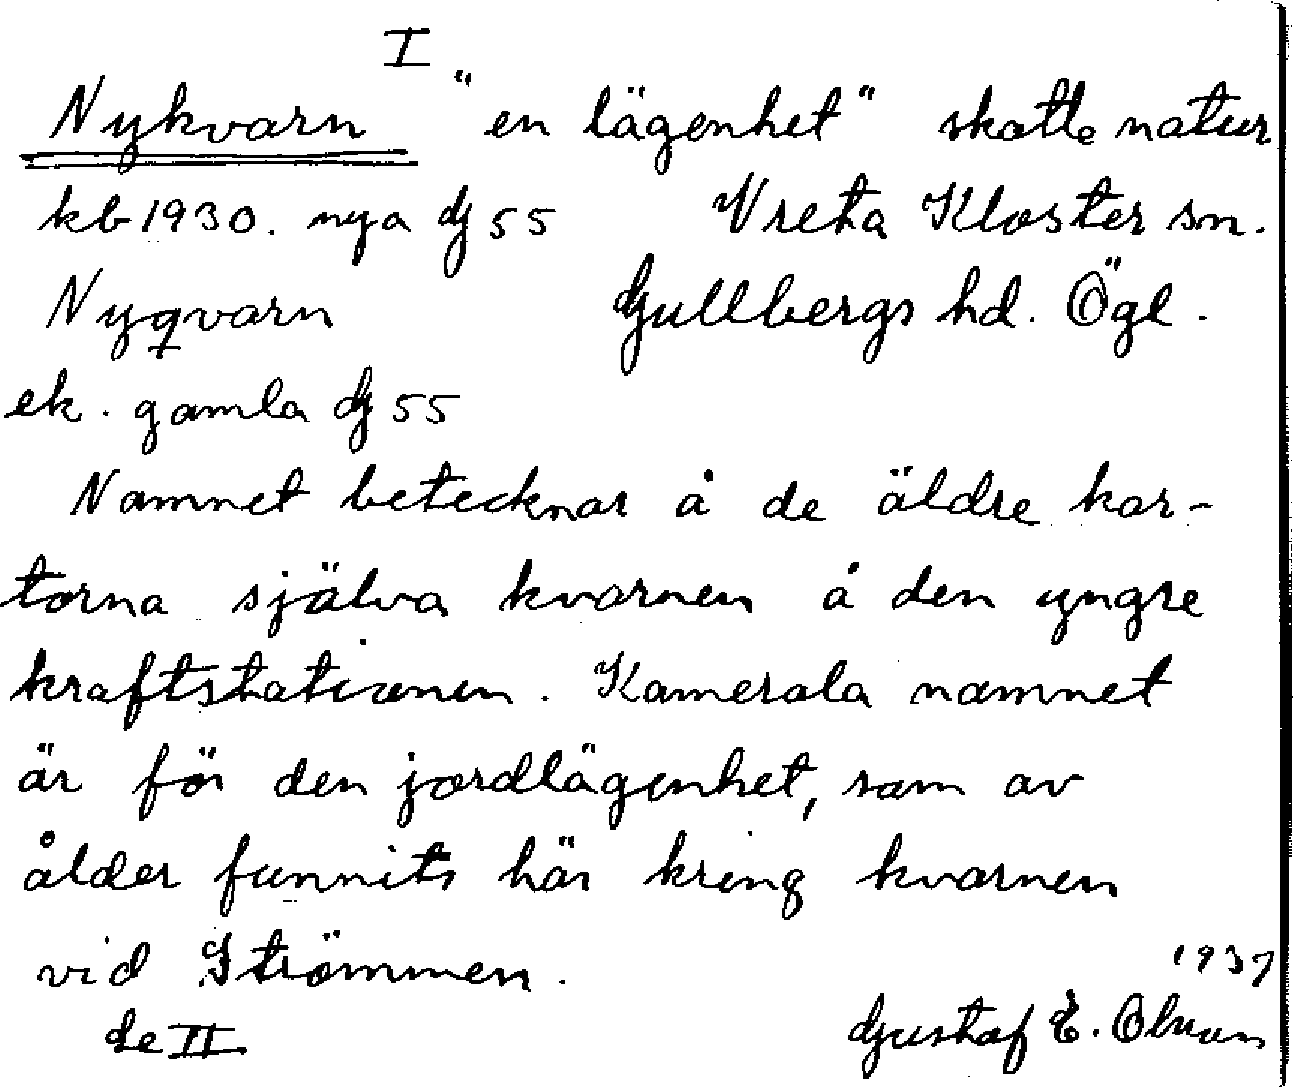 I
Nykvarn "en lägenhet" skatte natur
kb 1930. nya G 55 Vreta Kloster sn.
Nyqvarn Gullbergs hd. Ögl.
ek. gamla G 55
Namnet betecknar å de äldre kar-
torna själva kvarnen å den yngre
kraftstationen. Kamerala namnet
är för den jordlägenhet, som av
ålder funnits här kring kvarnen
vid Strömmen.
1937
se II Gustaf E. Olson